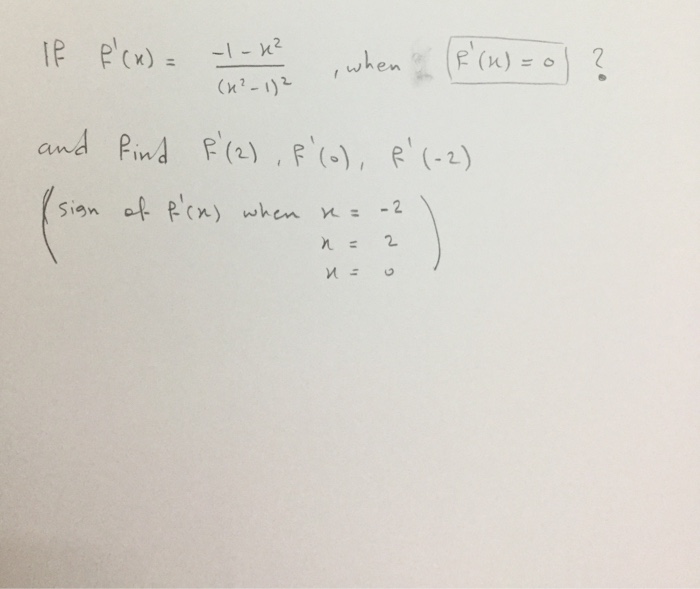 If f'(x) = (-1 - x²) / (x² - 1)² , when f'(x) = 0 ?
and find f'(2) , f'(0) , f'(-2)
(sign of f'(x) when x = -2
x = 2
x = 0)